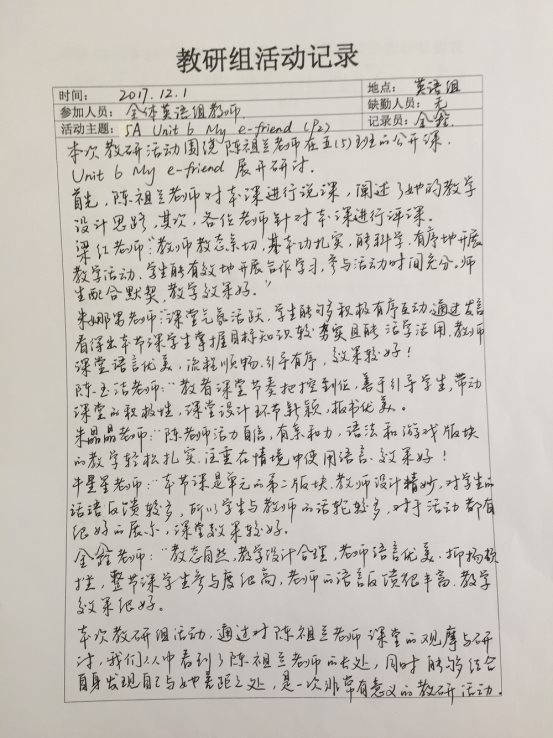 教研组活动记录
时间： 2017.12.1 地点： 英语组
参加人员： 全体英语组教师 缺勤人员： 无
活动主题： 5A Unit 6 My e-friend (P2) 记录员： 金
本次教研活动围绕陈祖兰老师在五(5)班的公开课
Unit 6 My e-friend 展开研讨.
首先，陈祖兰老师对本课进行说课，阐述了她的教学
设计思路，其次，各位老师针对本课进行评课。
梁红老师："教师教态亲切，基本功扎实，能科学、有序地开展
教学活动，学生能有效地开展合作学习，参与活动时间充分。师
生配合默契，教学效果好。"
朱娜老师："课堂气氛活跃，学生能够积极有序互动，通过发言
看得出本节课学生掌握目标知识较扎实且能活学活用.教师
课堂语言优美，流程顺畅.引导有序，效果较好！
陈玉洁老师："教者课堂节奏把控到位，善于引导学生，带动
课堂的积极性，课堂设计环节新颖，板书优美。
朱晶晶老师："陈老师活力自信，有亲和力，语法和游戏版块
的教学轻松扎实.注重在情境中使用语言.效果好！
牛星星老师："本节课是单元的第二版块.教师设计精妙，对学生的
话语反馈较多，所以学生与教师的话轮较多，对于活动都有
很好的展示，课堂效果较好。
金老师："教态自然，教学设计合理，老师语言优美、抑扬顿
挫，整节课学生参与度很高，老师的语言反馈很丰富.教学
效果很好。
本次教研组活动，通过对陈祖兰老师课堂的观摩与研
讨，我们从中看到了陈祖兰老师的长处，同时能够结合
自身发现自己与她差距之处，是一次非常有意义的教研活动.